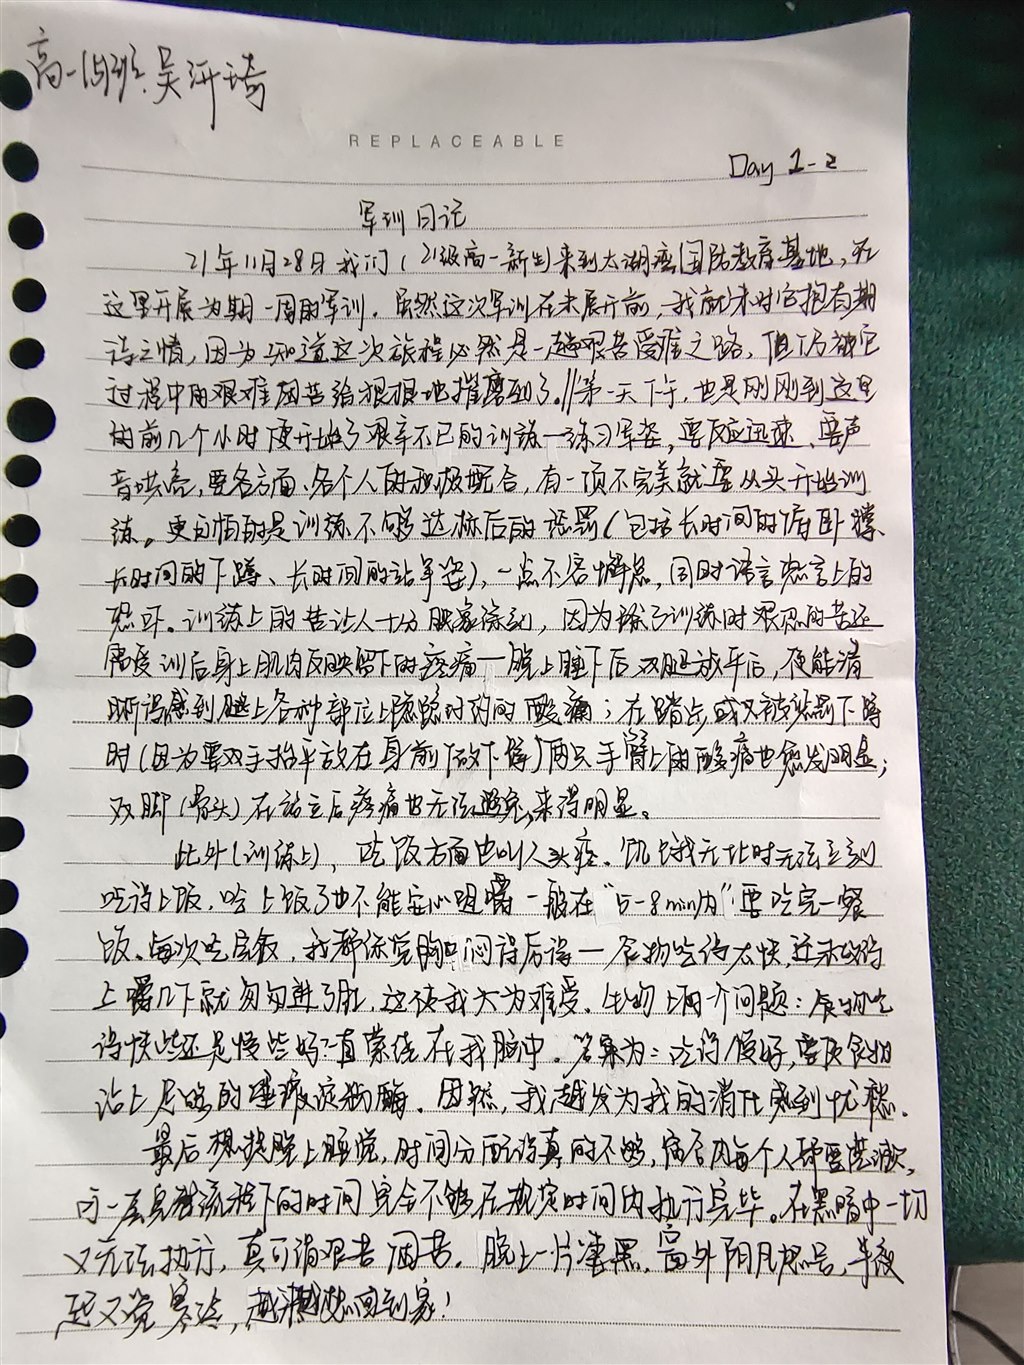 高一(5)班 吴汧琦
REPLACEABLE
Day 1-2
军训日记
21年11月28日我们(21级高一新生)来到太湖湾国防教育基地,在
这里开展为期一周的军训。虽然这次军训在未展开前,我就未对它抱有期
待之情,因为知道这次旅程必然是一趟艰苦受难之路,但仍被它
过程中的艰难困苦给狠狠地摧磨到了。//第一天下午,也是刚刚到这里
的前几个小时便开始了艰辛不已的训练—练习军姿,要反应迅速、要声
音洪亮,要各方面、各个人的积极配合,有一项不完美就要从头开始训
练。更可怕的是训练不够达标后的惩罚(包括长时间的俯卧撑
长时间的下蹲、长时间的站军姿),一点不容懈怠,同时语言上的
恐吓。训练上的苦让人十分映象深刻,因为除了训练时艰忍的苦还
需受训后身上肌肉反映留下的疼痛—晚上睡下后双腿放平后,便能清
晰得感到腿上各种部位上隐隐对药的酸痛;在踏步或又被惩罚下蹲
时(因为要双手抬平放在身前做下蹲)两只手臂上的酸痛也愈发明显;
双脚(骨头)在站立后疼痛也无法避免,来得明显。
此外(训练上),吃饭方面也叫人头疼。饥饿无比时无法立刻
吃得上饭,吃上饭了也不能安心咀嚼一般在“5-8min内”要吃完一餐
饭。每次吃完饭,我都能觉胸中闷得厉害—食物吃得太快,还未来得
上嚼几下就匆匆进了肚,这使我大为难受。生物上有个问题:食物吃
得快些还是慢些好?一直萦绕在我脑中。答案为:吃得慢好,要使食物
沾上足够的唾液淀粉酶。因然,我越发为我的消化感到忧愁。
最后想提晚上睡觉,时间分配得真的不够,宿舍内每个人都要洗漱,
可一套完整流程下的时间完全不够在规定时间内执行完毕。在黑暗中一切
又无法执行,真可谓艰苦困苦。晚上一片漆黑,窗外阴风怒号,半夜
起又觉寒冷,越来越想回到家!